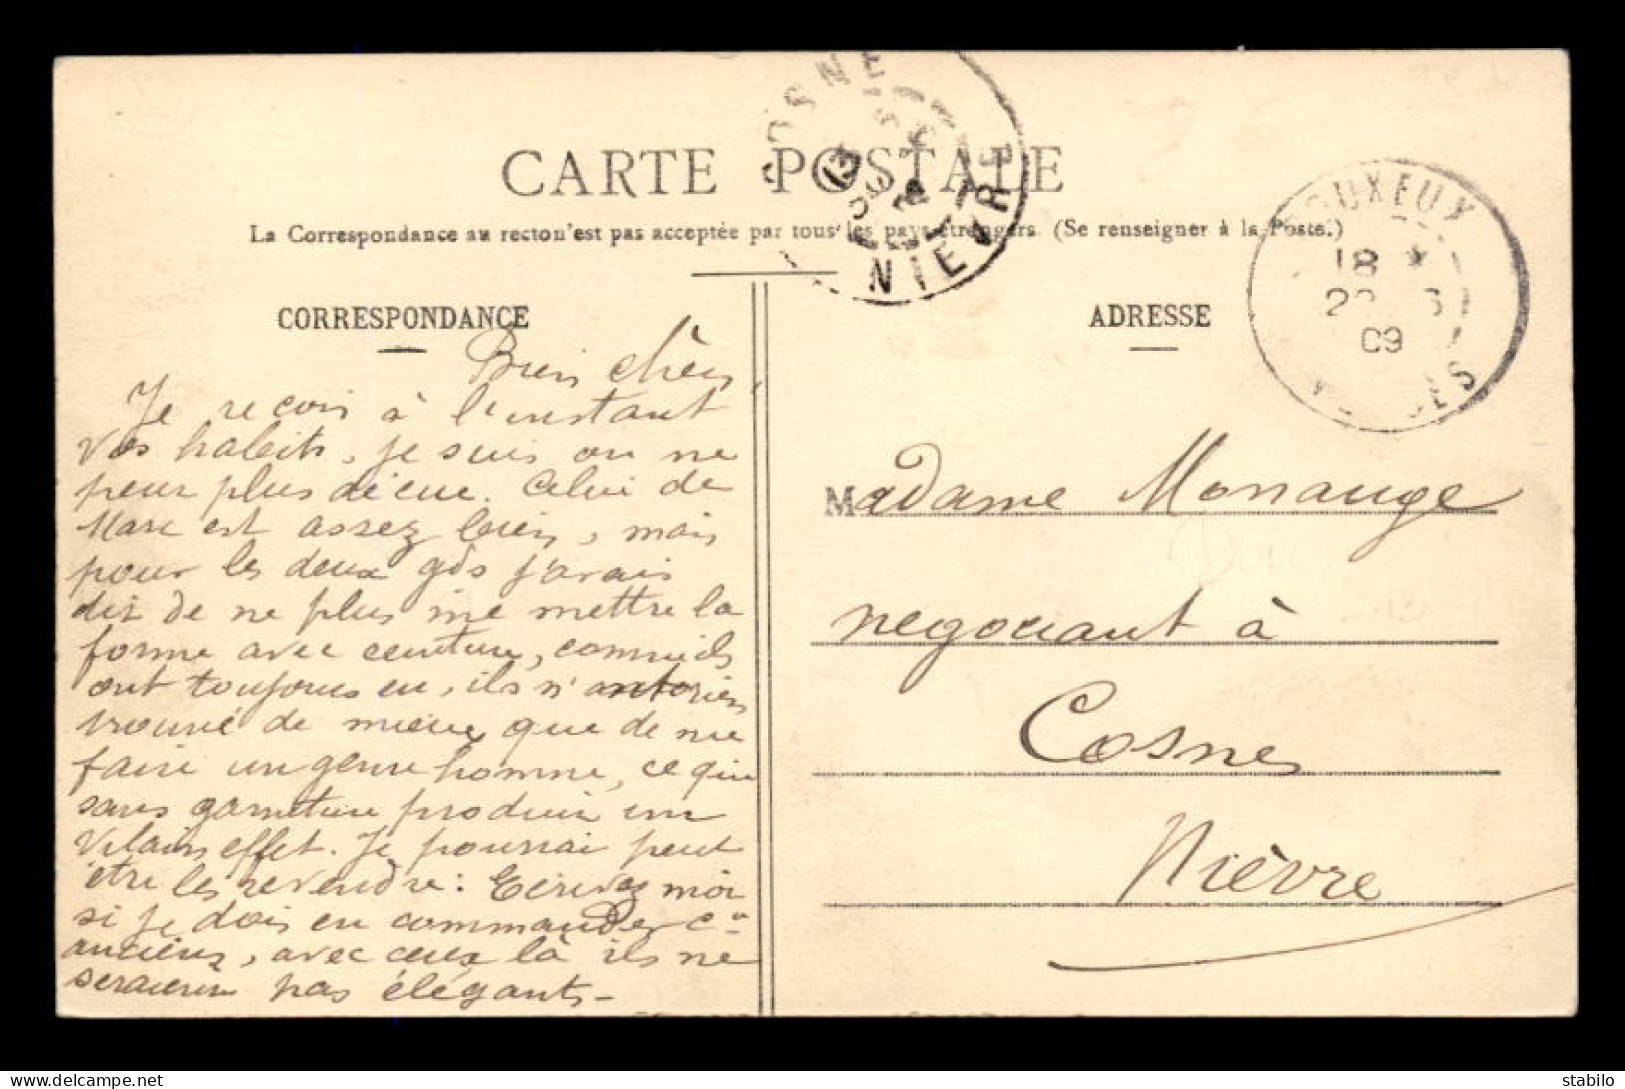 CARTE POSTALE
La Correspondance au recto n'est pas acceptée par tous les pays étrangers. (Se renseigner à la Poste.)
CORRESPONDANCE
Bien chers,
Je reçois à l'instant
vos habits, je suis on ne
peux plus déçue. Celui de
Marc est assez bien, mais
pour les deux gds j'avais
dit de ne plus me mettre la
forme avec ceinture, comme ils
ont toujours eu, ils n'ont rien
trouvé de mieux que de me
faire un genre homme, ce qui
sans garniture produit un
vilain effet. Je pourrai peut
être les revendre: Ecrivez moi
si je dois en commander
anciens, avec ceux là ils ne
seraient pas élégants-
ADRESSE
Madame Monauge
negociant à
Cosne
Nièvre
COSNE
NIEVRE
18
09
VOSGES
delcampe.net
stabilo